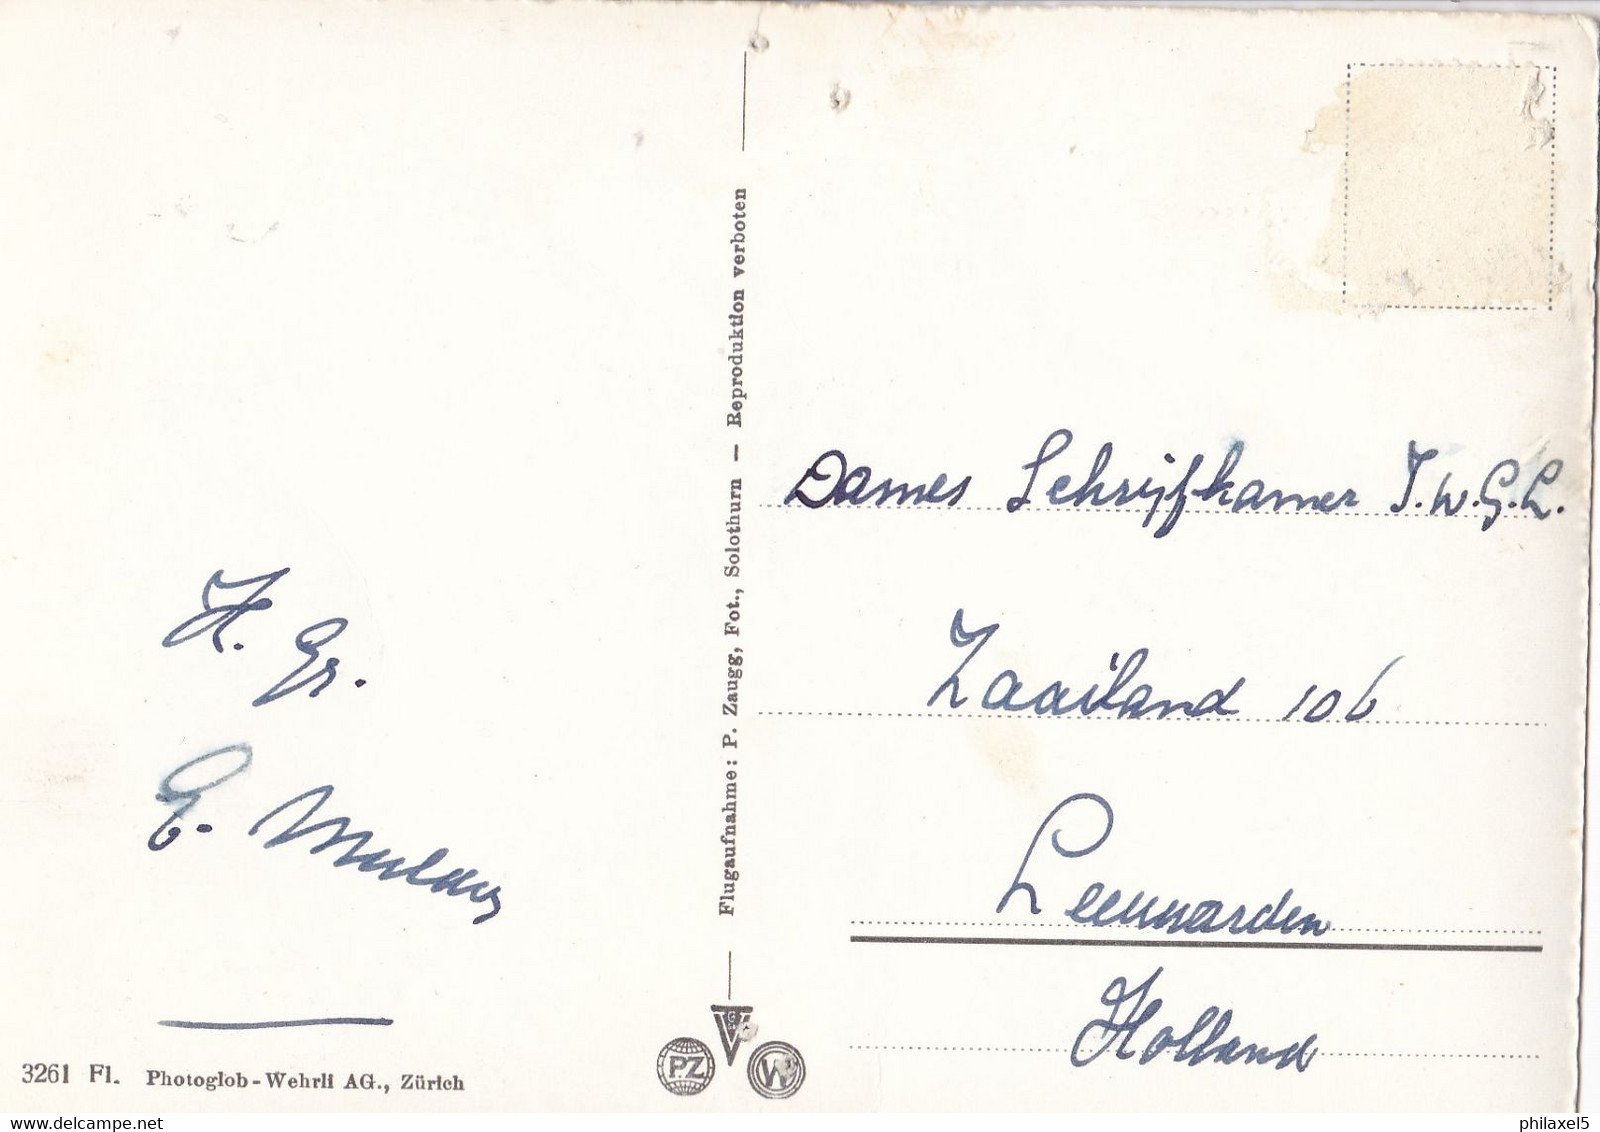 H. Gr.
E. Mulder
3261 Fl. Photoglob-Wehrli AG., Zürich
Flugaufnahme: P. Zaugg, Fot., Solothurn — Reproduktion verboten
PZ
W
Dames Schrijfkamer I.W.G.L.
Zaailand 106
Leeuwarden
Holland
www.delcampe.net
philaxel5